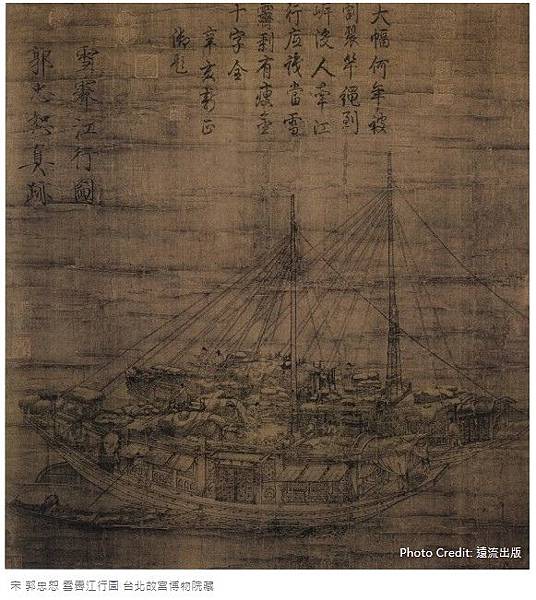 大幅何年被
割裂竿繩到
岸沒人牽江
行應識當雪
霽剩有瘦金
十字全
辛亥新正
御題
雪霽江行圖
郭忠恕真跡
Photo Credit: 遠流出版
宋 郭忠恕 雪霽江行圖 台北故宮博物院藏